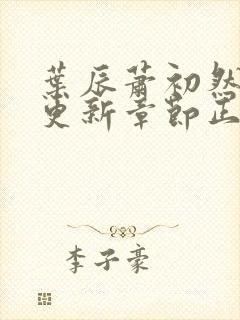 葉辰蕭初然
更新章節正
李子豪